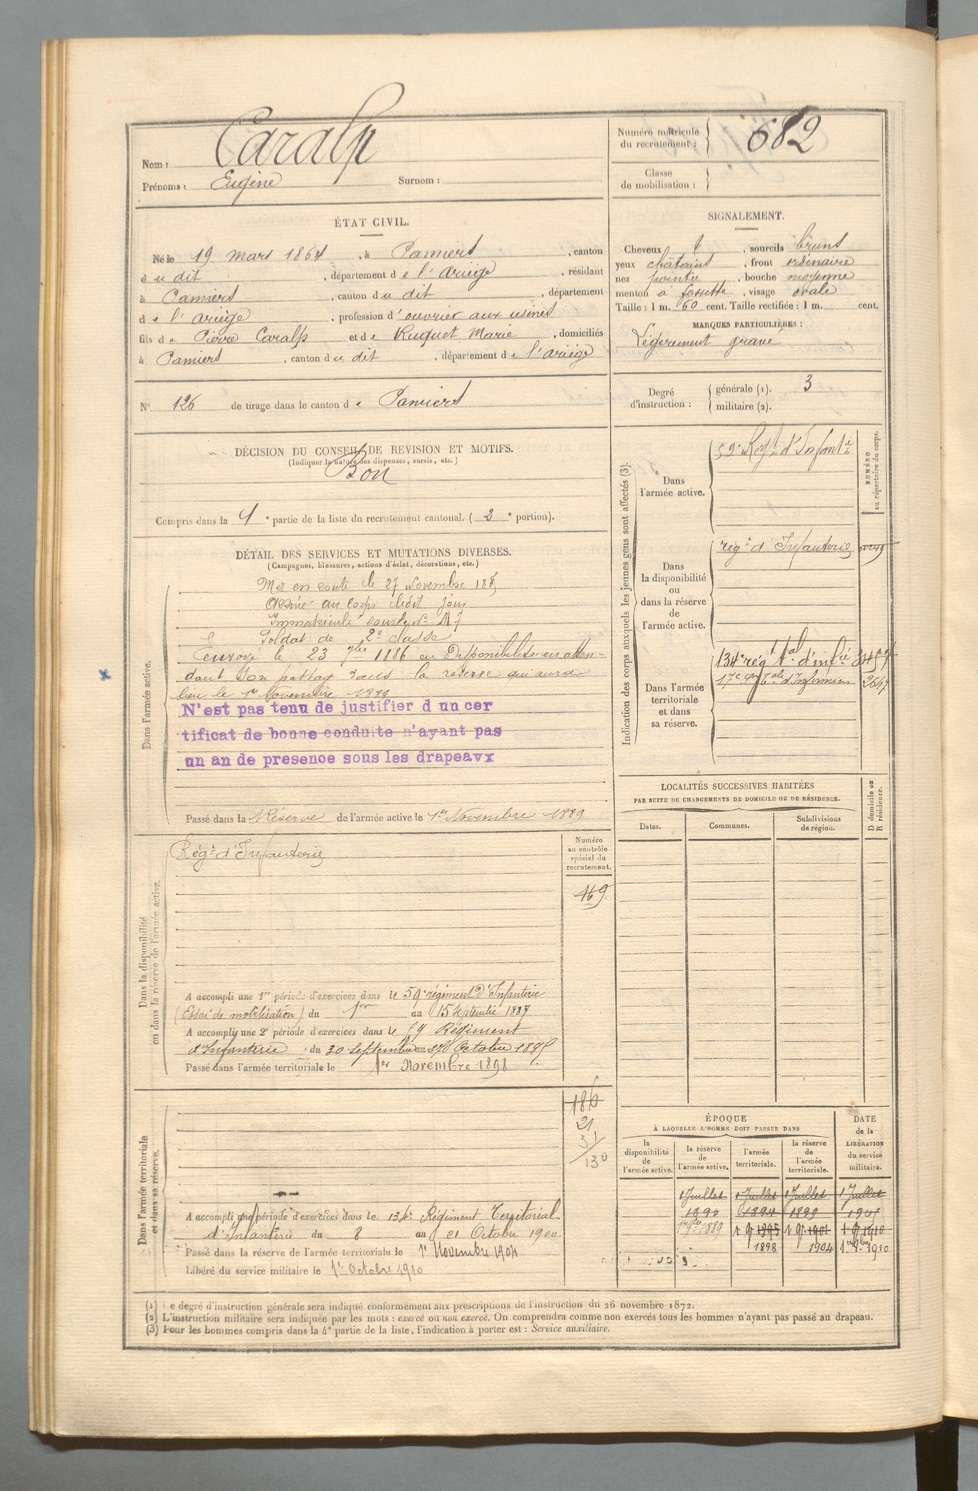 Nom : Caralp
Prénoms : Eugène Surnom :
Numéro matricule du recrutement : 682
Classe de mobilisation :
ÉTAT CIVIL.
Né le 19 mars 1864, à Pamiers, canton
du dit, département de l'ariège, résidant
à Pamiers, canton du dit, département
de l'ariège, profession d'ouvrier aux usines
fils de Pierre Caralp et de Ruquet Marie, domiciliés
à Pamiers, canton du dit, département de l'ariège
N° 126 de tirage dans le canton de Pamiers
SIGNALEMENT.
Cheveux et, sourcils bruns
yeux châtains, front ordinaire
nez pointu, bouche moyenne
menton à fossette, visage ovale
Taille : 1 m. 60 cent. Taille rectifiée : 1 m. cent.
MARQUES PARTICULIÈRES :
Légèrement gravé
Degré d'instruction : générale (1). 3
militaire (2).
DÉCISION DU CONSEIL DE REVISION ET MOTIFS.
(Indiquer la nature des dispenses, sursis, etc.)
Bon
Compris dans la 1e partie de la liste du recrutement cantonal. (2e portion).
DÉTAIL DES SERVICES ET MUTATIONS DIVERSES.
(Campagnes, blessures, actions d'éclat, décorations, etc.)
Dans l'armée active.
Mis en route le 27 Novembre 1885
Arrivé au corps le dit jour
Immatriculé sous le N°
Soldat de 2e classe
Renvoyé le 23 7bre 1886 en Disponibilité en atten-
dant son passage dans la réserve qui aura
lieu le 1er Novembre 1889
N'est pas tenu de justifier d un cer
tificat de bonne conduite n'ayant pas
un an de presence sous les drapeaux
Passé dans la Réserve de l'armée active le 1er Novembre 1889
Dans la disponibilité ou dans la réserve de l'armée active.
Régt d'Infanterie
Numéro au contrôle spécial du recrutement.
169
A accompli une 1re période d'exercices dans le 59e régiment D'Infanterie
(Essai de mobilisation) du 1er au 15 Septembre 1887
A accompli une 2e période d'exercices dans le 59 Régiment
d'Infanterie du 30 Septembre au 27 Octobre 1895
Passé dans l'armée territoriale le 1er Novembre 1898
Dans l'armée territoriale et dans sa réserve.
186
21
31
130
A accompli une période d'exercices dans le 134e Régiment Territorial
d'Infanterie du 8 au 21 Octobre 1900
Passé dans la réserve de l'armée territoriale le 1er Novembre 1904
Libéré du service militaire le 1er Octobre 1910
Indication des corps auxquels les jeunes gens sont affectés (3).
NUMÉRO au répertoire du corps.
Dans l'armée active.
59e Régt d'Infantie
Dans la disponibilité ou dans la réserve de l'armée active.
régt d'Infanterie
Dans l'armée territoriale et dans sa réserve.
134e rég tal d'infie
17e Infirmiers 2647
LOCALITÉS SUCCESSIVES HABITÉES
PAR SUITE DE CHANGEMENTS DE DOMICILE OU DE RÉSIDENCE.
Dates. Communes. Subdivisions de région. D domicile ou R résidence.
ÉPOQUE
À LAQUELLE L'HOMME DOIT PASSER DANS
DATE de la LIBÉRATION du service militaire.
la disponibilité de l'armée active. la réserve de l'armée active. l'armée territoriale. la réserve de l'armée territoriale.
1 Juillet 1 Juillet 1 Juillet 1 Juillet
1890 1894 1899 1905
1889 1895 1901 1910
1898 1904 1910
(1) e degré d'instruction générale sera indiqué conformément aux prescriptions de l'instruction du 26 novembre 1872.
(2) L'instruction militaire sera indiquée par les mots : exercé ou non exercé. On comprendra comme non exercés tous les hommes n'ayant pas passé au drapeau.
(3) Pour les hommes compris dans la 4e partie de la liste, l'indication à porter est : Service auxiliaire.